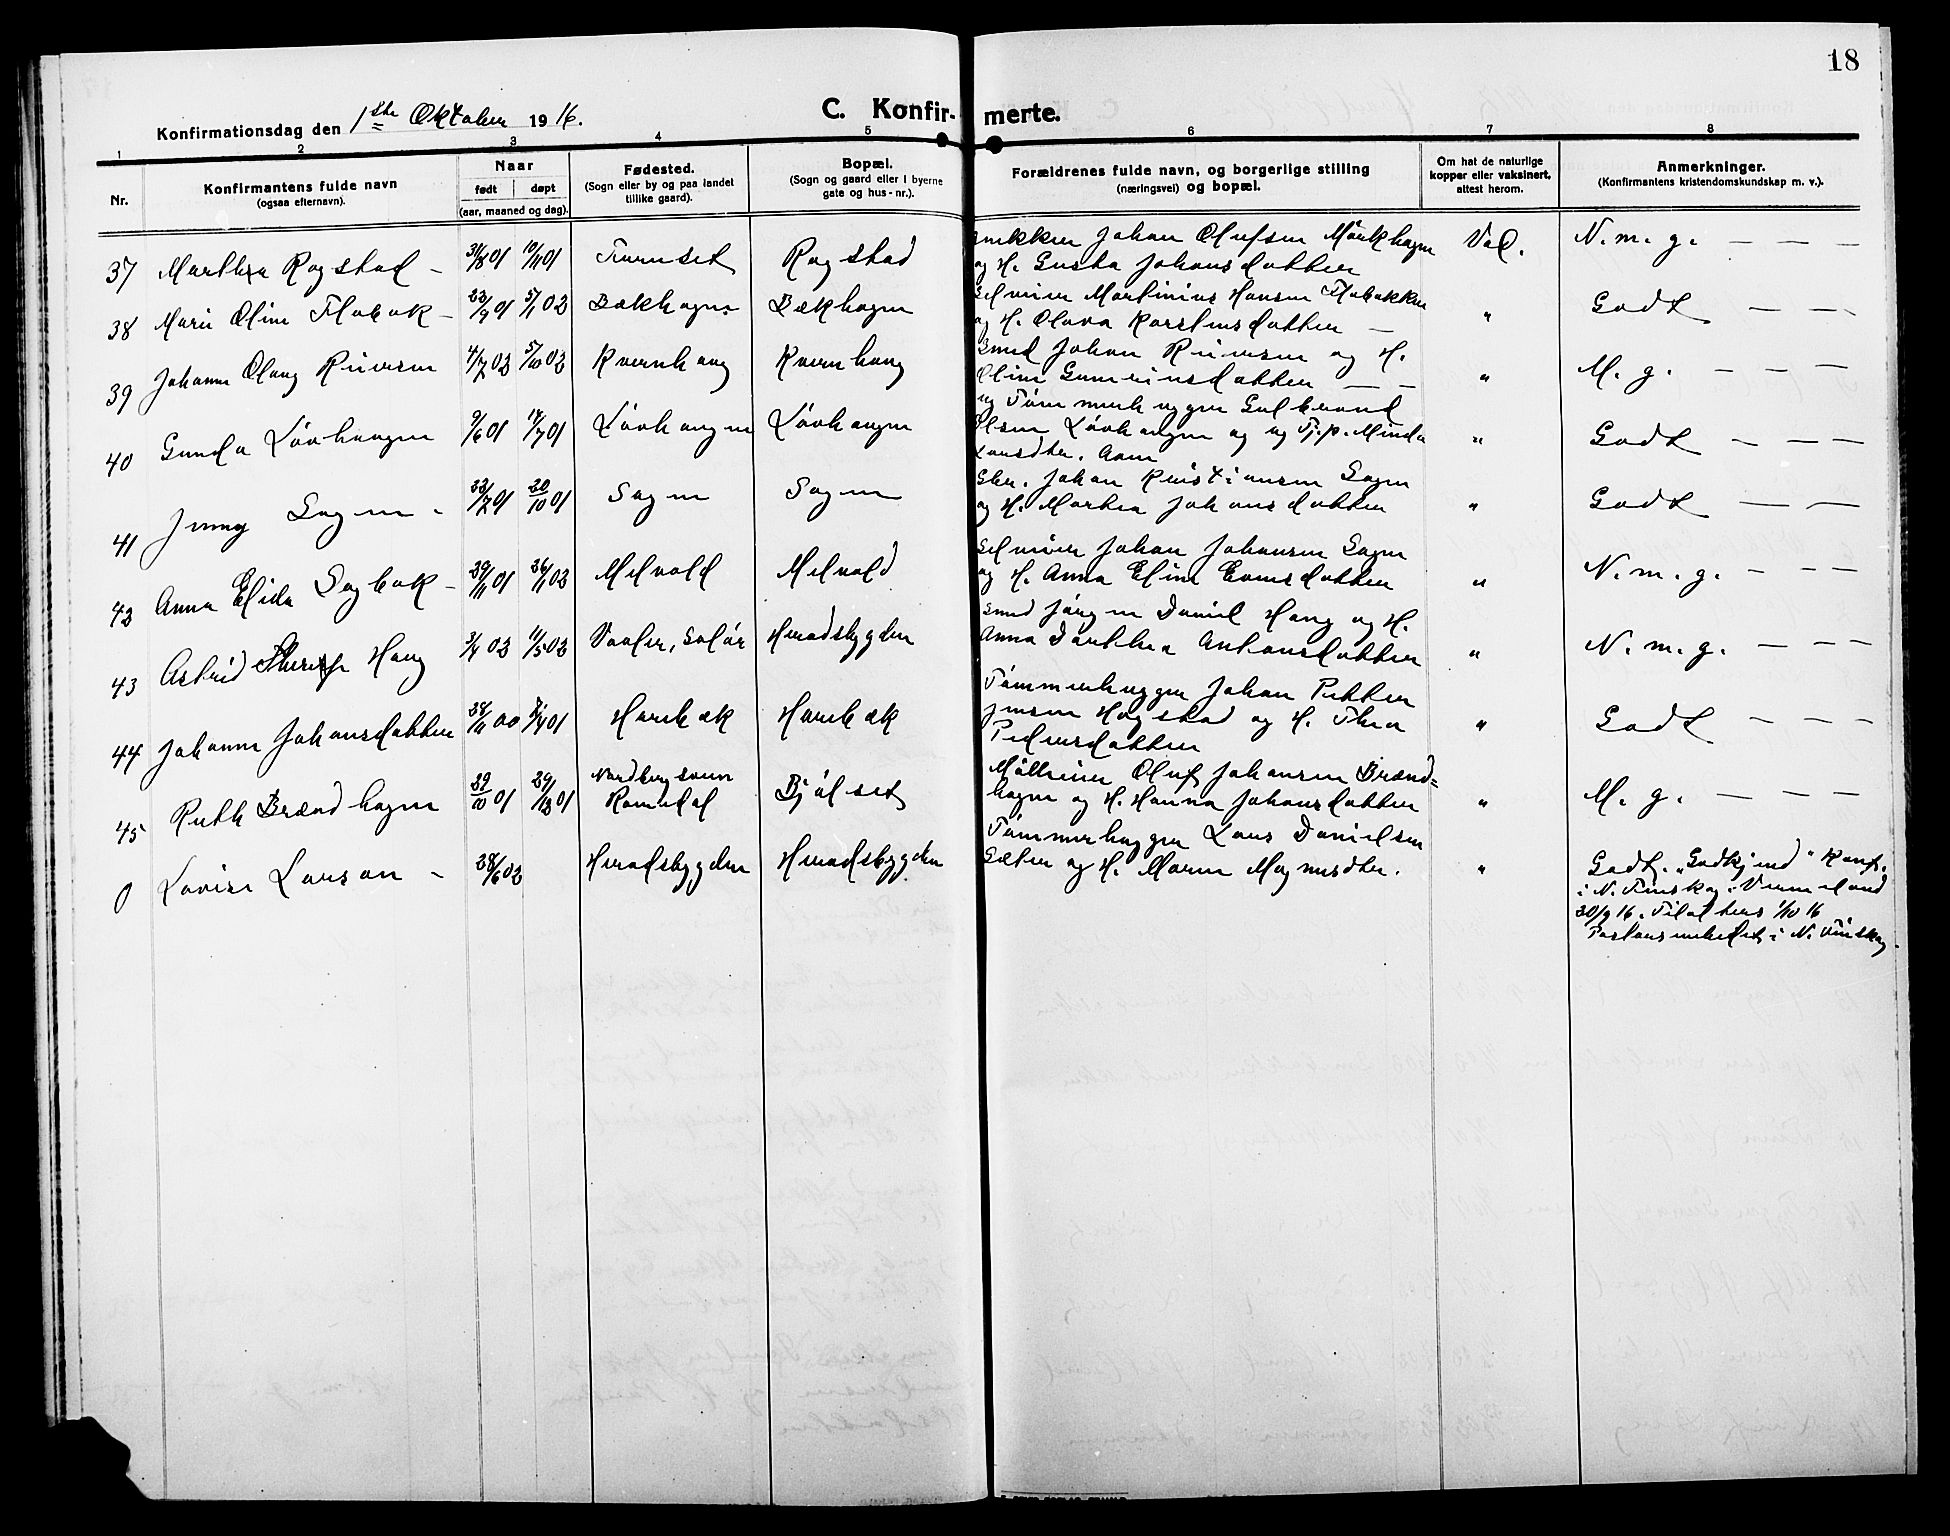 18
Konfirmationsdag den 1ste Oktober 1916.
C. Konfir- merte.
1 2 3 4 5 6 7 8
Nr.
Konfirmantens fulde navn
(ogsaa efternavn).
Naar
født døpt
(aar, maaned og dag).
Fødested.
(Sogn eller by og paa landet
tillike gaard).
Bopæl.
(Sogn og gaard eller i byerne
gate og hus-nr.).
Forældrenes fulde navn, og borgerlige stilling
(næringsvei) og bopæl.
Om hat de naturlige
kopper eller vaksinert,
attest herom.
Anmerkninger.
(Konfirmantens kristendomskundskap m. v.).
37 Marthea Rogstad - 31/8 01 10/11 01 Rogstad
Snekker Johan Olufsen Mörkhagen
og H. Gusta Johansdatter
Vac. N. m. g. — — —
38 Marie Oline Flobak - 23/9 01 5/1 02 Bækhagen Bækhagen
Selveier Martinius Hansen Flobakken
og H. Olava Karstensdatter —
" Godt — — —
39 Johanne Olaug Reiersen 4/7 02 5/10 02 Kvernhaug Kvernhaug
Smed Johan Reiersen og H.
Oline Gunneriusdatter — —
" M. g. — — —
40 Gunda Lövhaugen 9/6 01 14/7 01 Lövhaugen Lövhaugen
ug Tömmerhugger Gulbrand
Olsen Lövhaugen og ug Tj.p. Minda
Larsdter. Aam
" Godt — — —
41 Jenny Sagen - 23/7 01 20/10 01 Sagen Sagen
Gbr. Johan Kristiansen Sagen
og H. Marthea Johansdatter
" Godt — —
42 Anna Elida Sagbak - 29/11 01 26/1 02 Melvold Melvold
Selveier Johan Johansen Sagen
og H. Anna Eline Evensdatter
" N. m. g. — — —
43 Astrid Therese Haug 3/4 02 11/5 02 Vaaler, Solør Heradsbygden
Smed Jörgen Daniel Haug og H.
Anna Dorthea Antonsdatter
" N. m. g. — — —
44 Johanne Johansdatter 28/11 00 01 Harebæk Harebæk
Tömmerhugger Johan Petter
Jensen Hogstad og H. Thea
Pedersdatter
" Godt — — —
45 Ruth Brændhagen 29/10 01 29/12 01
Romedal Bjölset
Mölleeier Oluf Johansen Brænd=
hagen og H. Hanna Johansdatter
" M. g. — — —
0 Lovise Larson - 28/6 02 Heradsbygden Heradsbygden
Tömmerhugger Lars Danielsen
Sæter og H. Maren Magnusdter.
" Godt. "Godkjend" Konf.
i N. Finskog i Vermeland
30/9 16. Til alters 1/10 16
Pastorsembedet i N. Finskog.